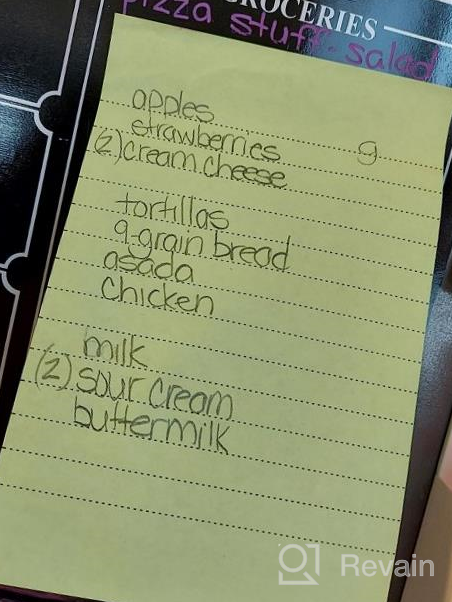 GROCERIES
pizza stuff-salad
apples
strawberries 9
(2) cream cheese
tortillas
9-grain bread
asada
chicken
milk
(2) sour cream
buttermilk
Revain